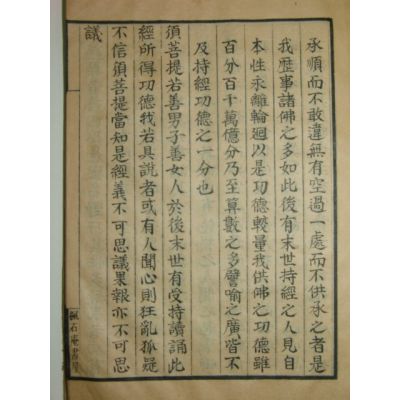 承順而不敢違無有空過一處而不供承之者是
我歷事諸佛之多如此後有末世持經之人見自
本性永離輪迴以是功德較量我供佛之功德雖
百分百千萬億分乃至算數之多譬喻之廣皆不
及持經功德之一分也
須菩提若善男子善女人於後末世有受持讀誦此
經所得功德我若具說者或有人聞心則狂亂狐疑
不信須菩提當知是經義不可思議果報亦不可思
議